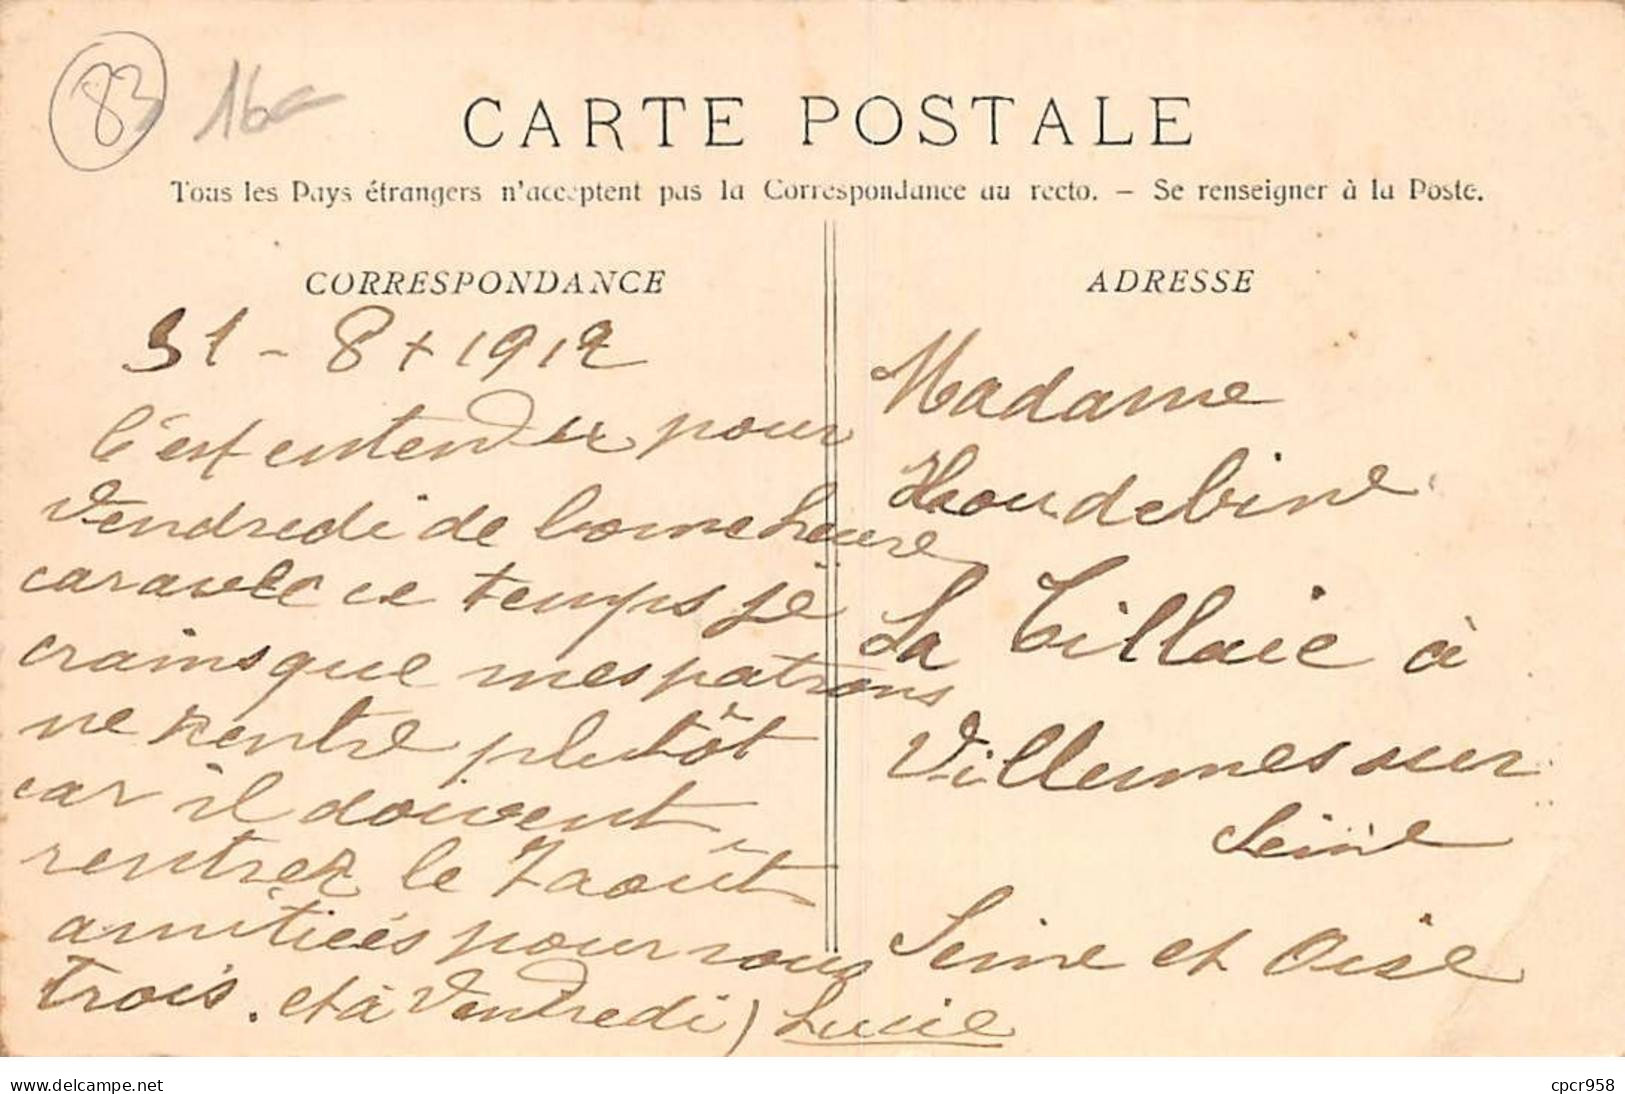 83 16
CARTE POSTALE
Tous les Pays étrangers n'acceptent pas la Correspondance au recto. — Se renseigner à la Poste.
CORRESPONDANCE
31 - 8 + 1912
C'est entendu pour
Vendredi de bonne heure
car avec ce temps je
crains que mes patrons
ne rentre plutôt
car il doivent
rentrer le 7 août
amitieés pour vous
trois. et à Vendredi) Lucie
ADRESSE
Madame
Houdebine
La Tillaie à
Villennes sur
Seine
Seine et Oise
delcampe.net
cpcr958